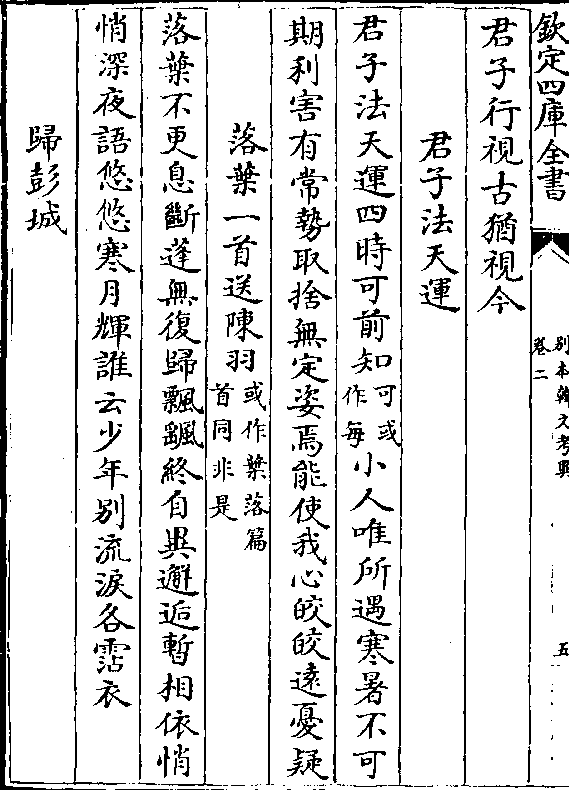 欽定四庫全書
別本韓文考異
卷二
五
君子行視古猶視今
君子法天運
君子法天運四時可前知可或作每小人唯所遇寒暑不可
期利害有常勢取捨無定姿焉能使我心皎皎遠憂疑
落葉一首送陳羽或作葉落篇首同非是
落葉不更息斷蓬無復歸飄颻終自異邂逅暫相依悄
悄深夜語悠悠寒月輝誰云少年別流淚各霑衣
歸彭城